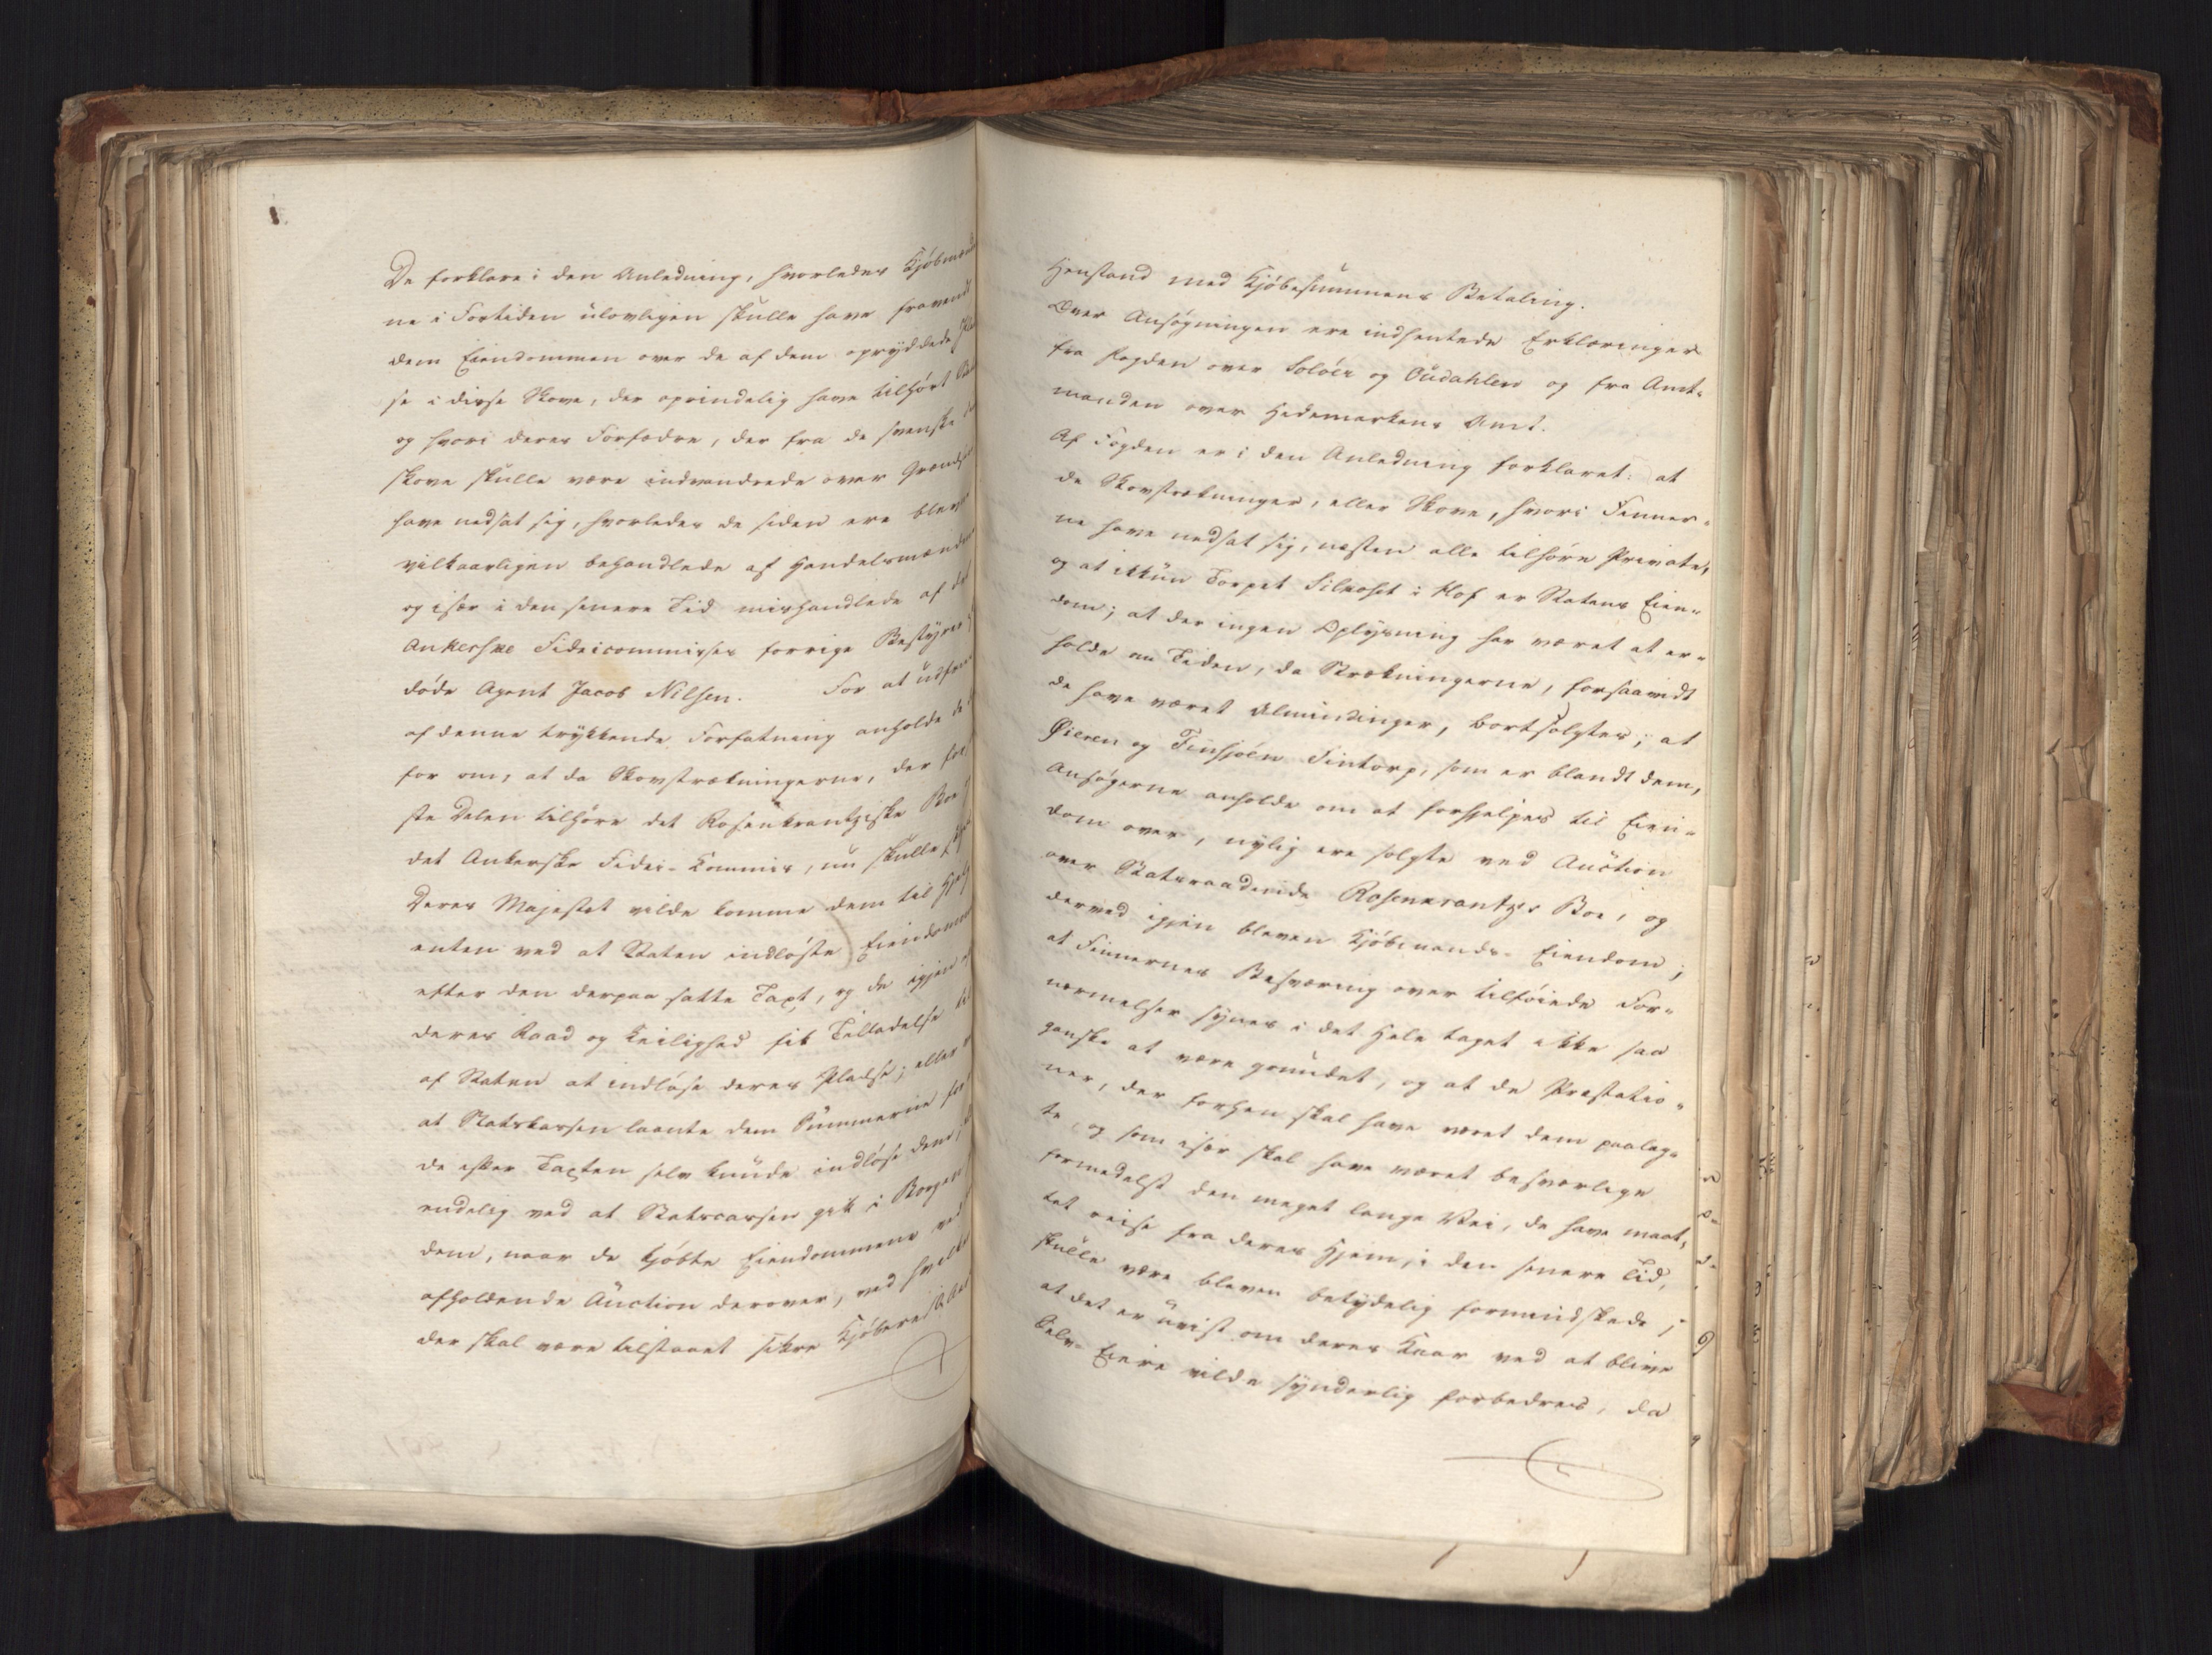 De forklare i den Anledning, hvorledes Kjöbmænd
ne i Fortiden ulovligen skulle have fravendt
dem Eiendommen over de af dem opryddede
se i disse Skove, der oprindelig have tilhört
og hvori deres Forfædre, der fra de svenske
skove skulle være indvandrede over Grændsen
have nedsat sig, hvorledes de siden ere blevne
vilkaarligen behandlede af Handelsmændene
og især i den senere Tid mishandlede af det
Ankerske Fideicommisses forrige Bestyrer
döde Agent Jacob Nilsen. For at udfries
af denne trykkende Forfatning anholde de
for om, at da Skovstrækningerne, der for
ste Delen tilhöre det Rosenkrantziske Boe
det Ankerske Fidei-Commis, nu skulle
Deres Majestet vilde komme dem til Hjelp
enten ved at Staten indlöste Eiendommene
efter den derpaa satte Taxt, og de igjen
deres Raad og Leilighed fik Tilladelse til
af Staten at indlöse deres Pladse; eller
at Statskassen laante dem Summerne for
de efter Taxten selv kunde indlöse dem;
endelig ved at Statscassen gik i Borgen
dem, naar de kjöbte Eiendommene ved
afholdende Auction derover, ved hvilken
der skal være tilstaaet sikre Kjöbere
Henstand med Kjöbesummens Betaling.
Over Ansögningen ere indhentede Erklæringer
fra Fogden over Solöer og Oudahlen og fra Amt-
manden over Hedemarkens Amt.
Af Fogden er i den Anledning forklaret: at
de Skovstrækninger, eller Skove, hvori Finner-
ne have nedsat sig, næsten alle tilhöre Private,
og at ikkun Torpet Silkoset i Hof er Statens Eien-
dom; at der ingen Oplysning har været at er-
holde om Tiden, da Strækningerne, forsaavidt
de have været Almindinger, bortsolgtes; at
Öieren og Finsjöen Fintorp, som er blandt dem,
Ansögerne anholde om at forhjelpes til Eien-
dom over, nylig ere solgte ved Auction
over Statsraadinde Rosenkrantzes Boe, og
derved igjen bleven Kjöbmands-Eiendom;
at Finnernes Besværing over tilföiede For-
nærmelser synes i det Hele taget ikke saa
ganske at være grundet, og at de Præstatio-
ner, der forhen skal have været dem paalag-
te, og som især skal have været besværlige
formedelst den meget lange Vei, de have maat-
tet reise fra deres Hjem, i den senere Tid,
skulle være bleven betydelig formindskede;
at det er uvist om deres Kaar ved at blive
Selv-Eiere vilde synderlig forbedres, da